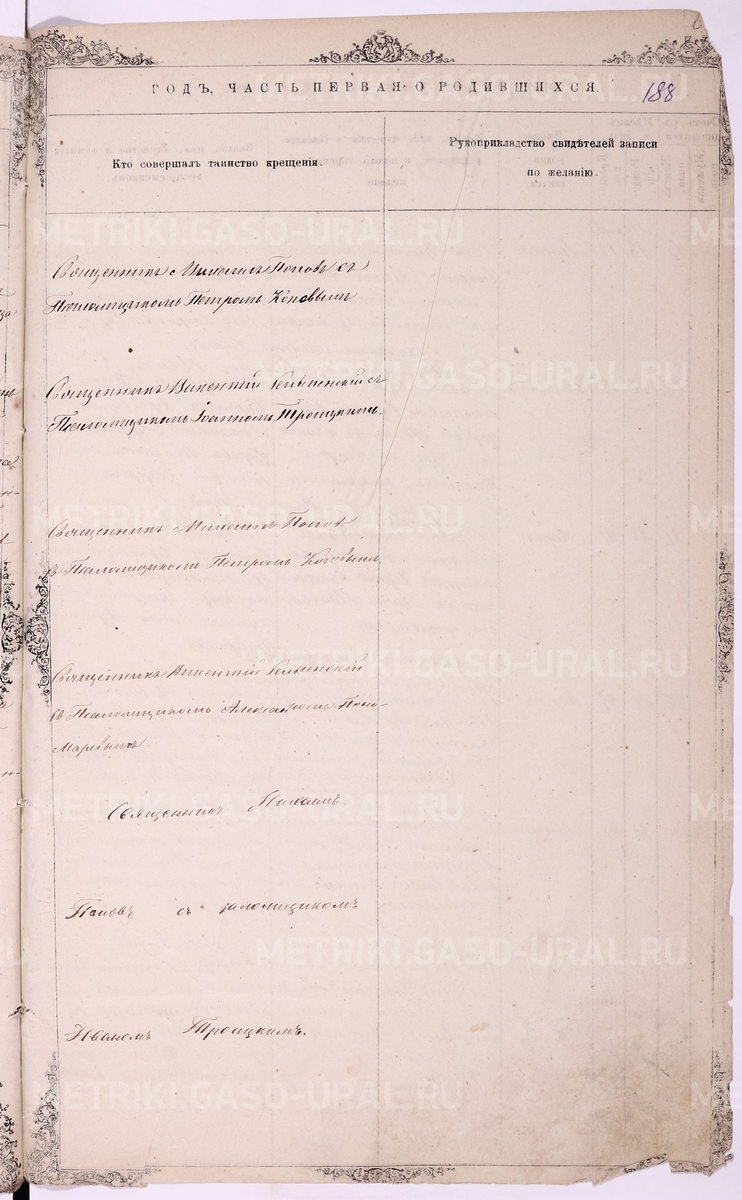 ГОДЪ, ЧАСТЬ ПЕРВАЯ О РОДИВШИХСЯ.
188
Кто совершалъ таинство крещенія.
Рукоприкладство свидѣтелей записи
по желанію.
Священникъ Михаилъ Поповъ съ
Псаломщикомъ Петромъ
Священникъ Викентій съ
Псаломщикомъ Іоанномъ Троицкимъ.
Священникъ Михаилъ Поповъ
съ Псаломщикомъ Петромъ
Священникъ Викентій
съ Псаломщикомъ Александромъ Поно-
маревымъ
Священникъ Михаилъ
Поповъ съ псаломщикомъ
Иваномъ Троицкимъ.
METRIKI.GASO-URAL.RU